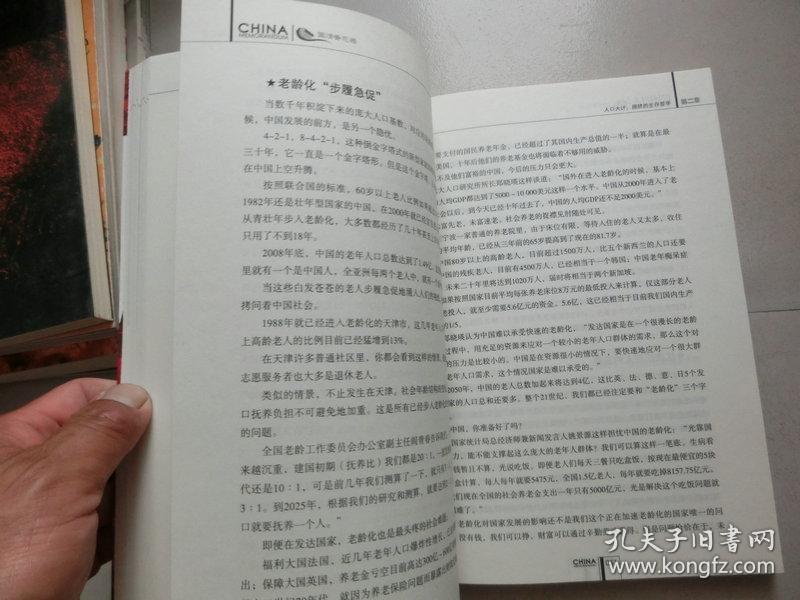 CHINA
MEMORANDUM
★老龄化“步履急促”
当数千年积淀下来的庞大人口基数,
候,中国发展的前方,是另一个隐忧。
4-2-1,8-4-2-1,这种倒金字塔式的
三十年,它一直是一个金字塔形。但是这个
在中国上空升腾。
按照联合国的标准,60岁以上老人比例
1982年还是壮年型国家的中国,在2000年就已经
从青壮年步入老龄化,大多数都经历了几十年甚至
只用了不到18年。
2008年底,中国的老年人口总数达到了1.49亿,
里就有一个是中国人,全亚洲每两个老人中,就有一个
当这些白发苍苍的老人步履急促地涌入人们的
拷问着中国社会。
1988年就已经进入老龄化的天津市,这几年老
上高龄老人的比例目前已经猛增到13%。
在天津许多普通社区里,你都会看到这样的情景,
志愿服务者也大多是退休老人。
类似的情景,不止发生在天津。社会年龄结构的
口抚养负担不可避免地加重。这是所有已经步入老龄化
的问题。
全国老龄工作委员会办公室副主任阎青春告诉
来越沉重,建国初期(抚养比)我们都是20:1,
代还是10:1,可是前几年我们测算了一下,就只有
3:1。到2025年,根据我们的研究和测算,就要达到
口就要抚养一个人。”
即便在发达国家,老龄化也是最头疼的社会难题。
福利大国法国,近几年老年人口爆炸性增长,
出;保障大国英国,养老金亏空目前高达300亿~
年代,就因为养老保险问题而暴露出
人口大计:拥挤的生存哲学
第二章
要支付的国民养老年金,已经超过了其国内生产总值的一半;就算是在最
美国,十年后他们的养老基金也将面临着不够用的威胁。
不及他们富裕的中国,今后的压力只会更大。
大人口研究所所长郑晓瑛这样谈道:“国外在进入老龄化的时候,基本上
人均GDP都达到了5000~10 000美元这样一个水平。中国从2000年进入了老
会以后,到今天已经十年过去了,中国的人均GDP还不足2000美元。”
富先老、未富速老,社会养老的捉襟见肘随处可见。
宁波一家普通的养老院里,由于床位有限,等待入住的老人又太多,收住
平均年龄,已经从三年前的65岁提高到了现在的81.7岁。
中国80岁以上的高龄老人,目前超过1500万人,比五个新西兰的人口还要
中国的残疾老人,目前有4500万人,已经相当于一个韩国;中国老年痴呆症
未来二十年里将达到1020万人,届时将相当于两个新加坡。
如果按照国家目前平均每张养老床位8万元的最低投入来计算,仅这部分老人
老人,就至少需要5.6亿元的资金。5.6亿,这已经相当于目前我们国内生产
1/5。
郑晓瑛认为中国难以承受快速的老龄化,“发达国家是在一个很漫长的老龄
过程中,用充足的资源来应对一个较小的老年人口群体的需求,那么这个对
的压力是比较小的。中国是在资源很小的情况下,要快速地应对一个很大群
老年人口需求,这个情况国家是难以承受的。”
2050年,中国的老人总数加起来将达到4亿,这比英、法、德、意、日5个发
家的人口总和还要多。整个21世纪,我们都已经注定要和“老龄化”三个字
中国,你准备好了吗?
国家统计局总经济师兼新闻发言人姚景源这样担忧中国的老龄化:“光靠国
力,能不能支撑起这么庞大的老年人群体?我们可以算这样一笔账。生病看
钱暂且不算,光说吃饭,即便老人们每天三餐只吃盒饭,按现在最便宜的5块
盒计算,每人每年就要5475元,全国1.5亿老人,每年就要吃掉8157.75亿元,
我们现在全国的社会养老金支出一年只有5000亿元,光是解决这个吃饭问题就
难了。”
老龄化对国家发展的影响还不是我们这个正在加速老龄化的国家唯一的问
没有钱,我们可以挣,财富可以通过辛勤
问题恰恰在于,未
CHINA
孔夫子旧书网
www.kongfz.com